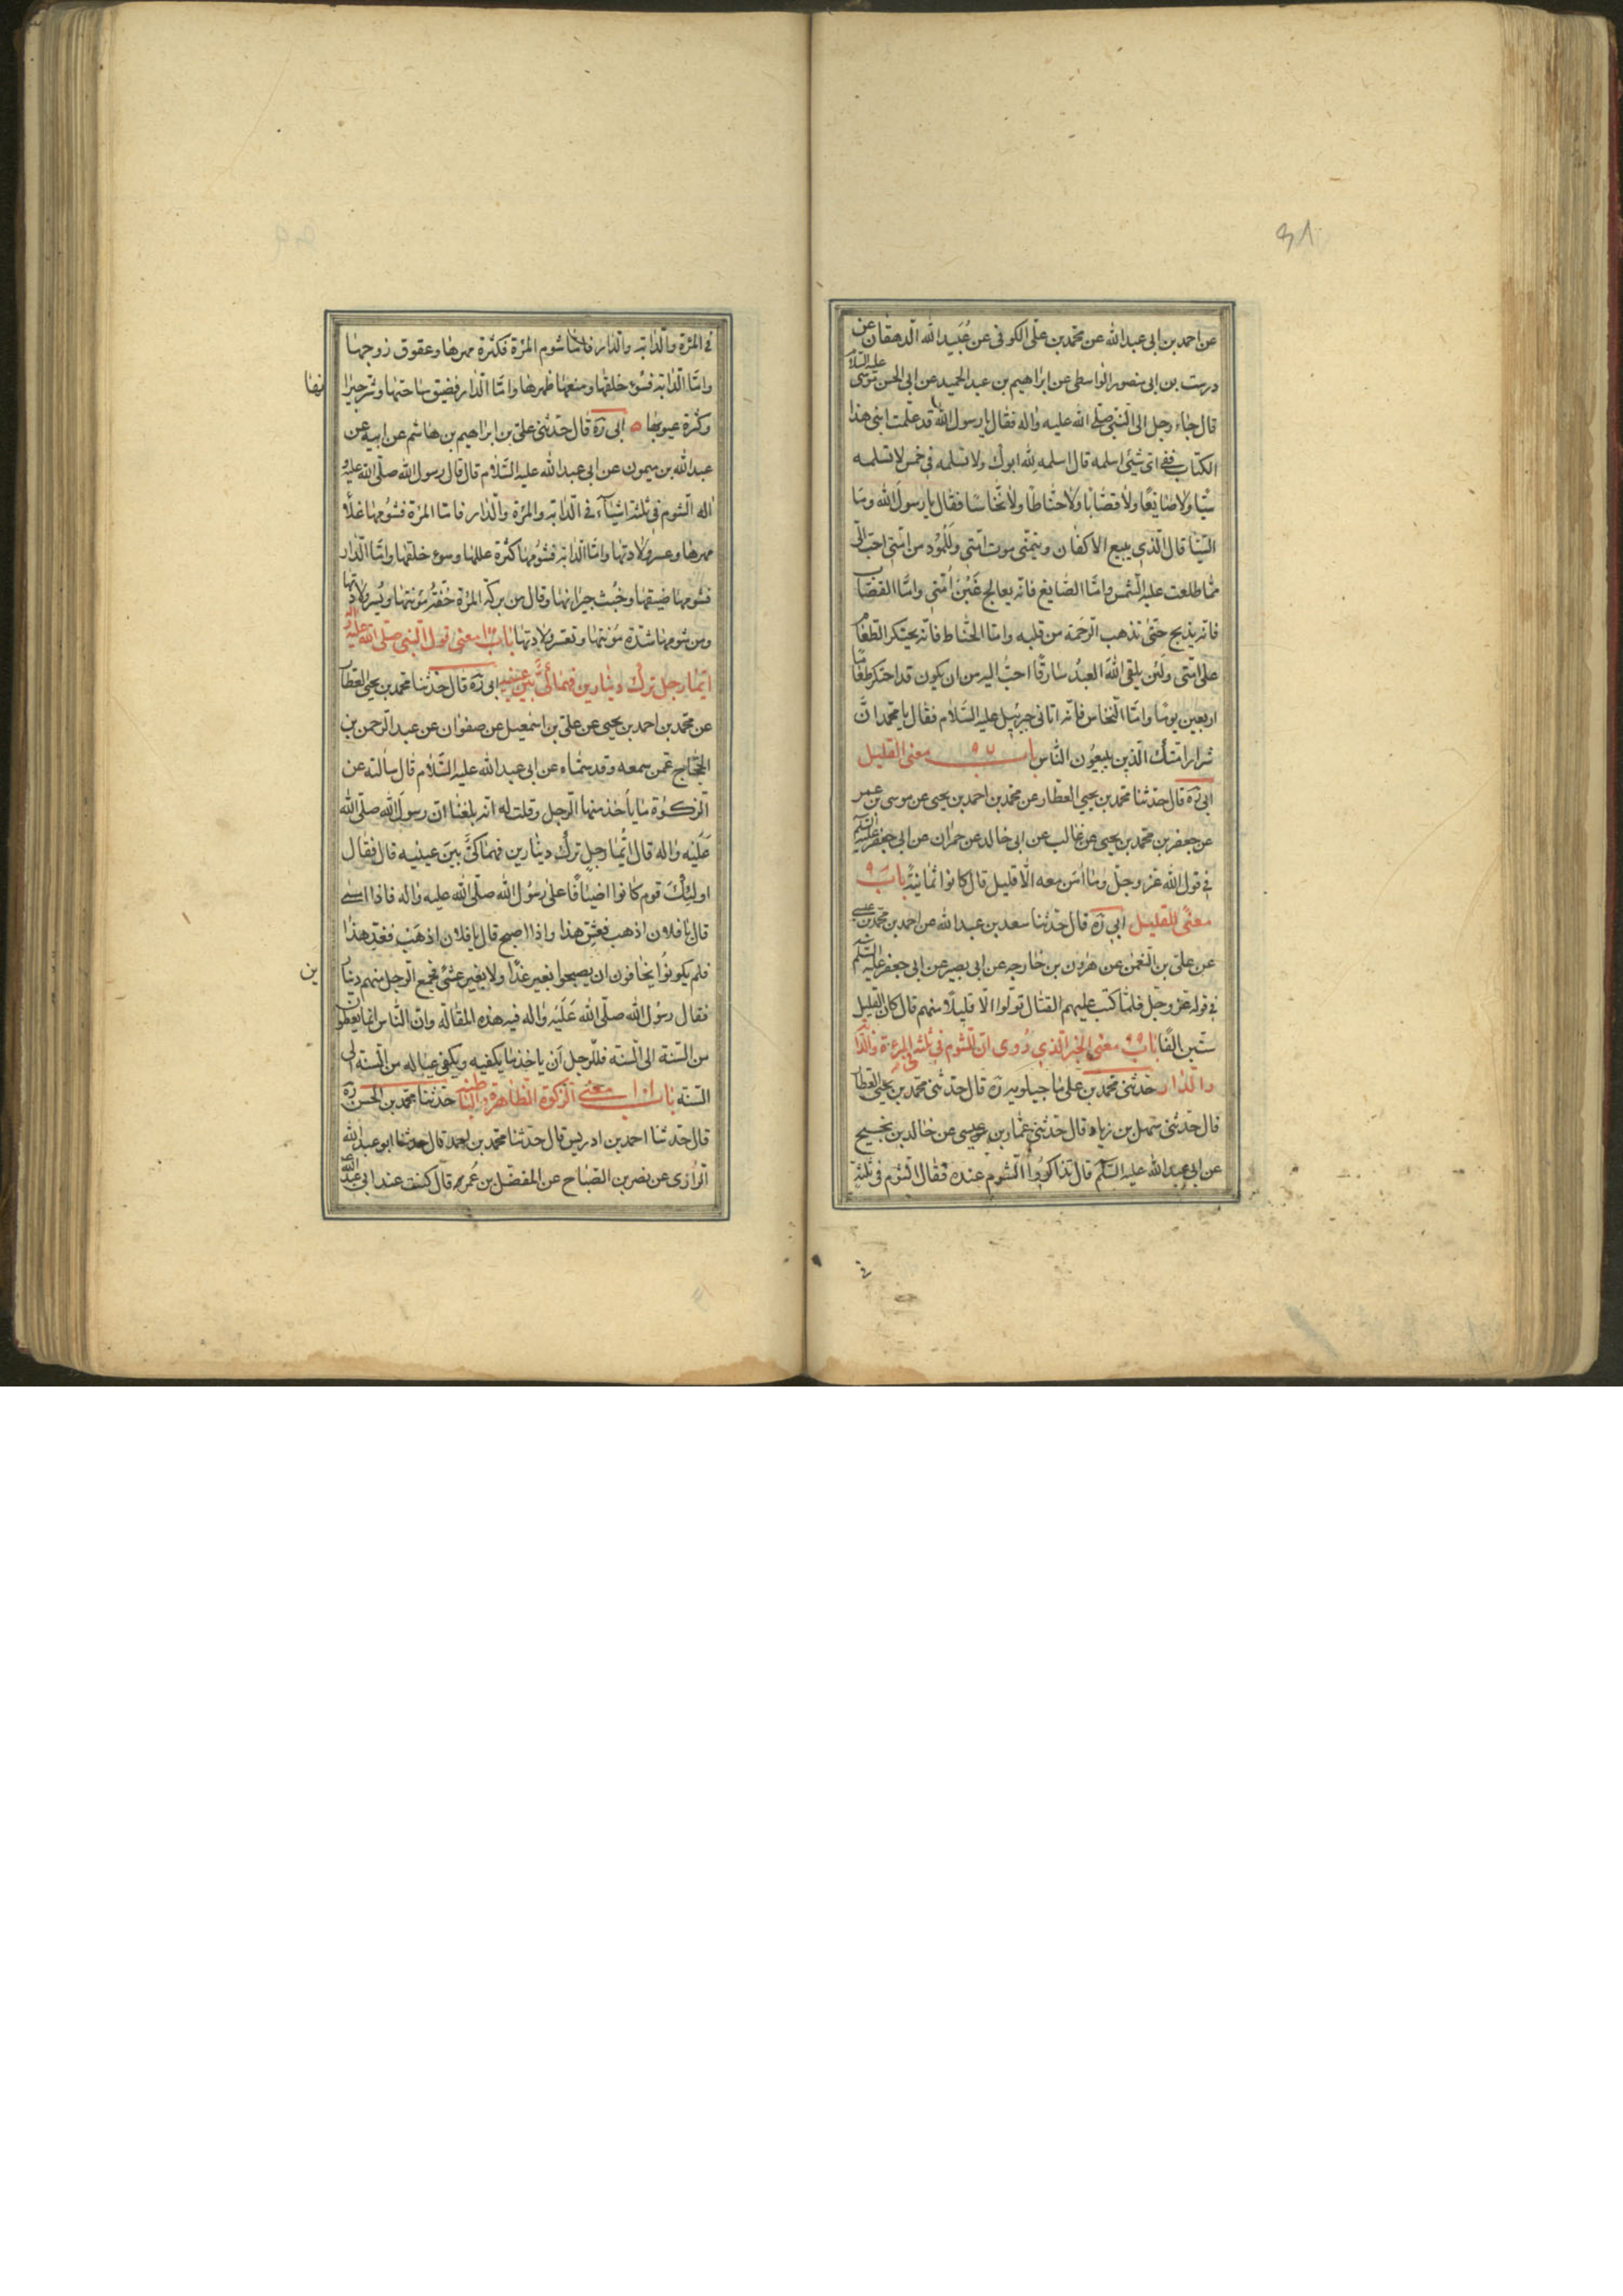 عن احمد بن ابی عبدالله عن محمد بن علی الکوفی عن عبیدالله الدهقان عن
درست بن ابی منصور الواسطی عن ابراهیم بن عبد الحمید عن ابی الحسن موسی علیه السلام
قال جاء رجل الی النبی صلی الله علیه واله فقال یا رسول الله قد علمت ابنی هذا
الکتاب ففی ای شیئی اسلمه قال اسلمه لله ابوك ولا تسلمه فی خمس لا تسلمه
سیّا ولا صایغا ولا قصّابا ولا حنّاطا ولا نخّاسا فقال یا رسول الله وما
السیّا قال الّذی یبیع الاکفان ویتمنّی موت امّتی وللمولود من امّتی احبّ الیّ
ممّا طلعت علیه الشمس وامّا الصّایغ فانّه یعالج غَبْنَ اُمّتی وامّا القصّاب
فانّه یذبح حتّی تذهب الرّحمة من قلبه وامّا الحنّاط فانّه یحتکر الطّعام
علی امّتی ولئن یلقی اللهَ العبدُ سارقًا احبُّ الیه من ان یکون قد احتکر طعاما
اربعین یوما وامّا النّخاس فانّه اتانی جبرئیل علیه السّلام فقال یا محمّد انّ
شرار امّتك الّذین یبیعون النّاس باب ٩٧ معنی القلیل
ابی ره قال حدثنا محمّد بن یحیی العطّار عن محمّد بن احمد بن یحیی عن موسی بن عمر
عن جعفر بن محمّد بن یحیی عن غالب عن ابی خالد عن حمران عن ابی جعفر علیه السّلم
فی قول الله عزّ وجلّ وما امَن معه الّا قلیل قال کانوا ثمانیة باب ٩
معنًی للقلیل ابی ره قال حدّثنا سعد بن عبدالله عن احمد بن محمّد بن عیسی
عن علیّ بن النّعمن عن هرون بن خارجه عن ابی بصیر عن ابی جعفر علیه السّلم
فی قوله عزّ وجلّ فلمّا کتب علیهم القتال تولّوا الّا قلیلًا منهم قال کان القلیل
ستّین الفًا باب ٩٩ معنی الخبر الّذی رُوی انّ الشّوم فی ثلثه المرءة والدّا
والدّار حدّثنی محمّد بن علی ماجیلویه ره قال حدّثنی محمّد بن یحیی العطّا
قال حدّثنی سهل بن زیاد قال حدّثنی عثمان بن عیسی عن خالد بن نجیح
عن ابی عبدالله علیه السّلم قال تذاکروا الشّوم عنده فقال الشّوم فی ثلثة
فی المرة والدّابّه والدّار فامّا شوم المرة فکثرة مهرها وعقوق زوجها
وامّا الدّابّه فسُوء خلقها ومنعها ظهرها وامّا الدّار فضیق ساحتها وشرّ جیرا
نها
وکثرة عیوبها ابی ره قال حدّثنی علیّ بن ابراهیم بن هاشم عن ابیه عن
عبدالله بن میمون عن ابی عبدالله علیه السّلام قال قال رسول الله صلّی الله علیه و
اله الشوم فی ثلثة اشیاء فی الدّابّه والمرة والدّار فامّا المرة فشؤمها غلاء
مهرها وعسر ولادتها وامّا الدّابّه فشؤمها کثرة عللها وسوء خلقها وامّا الدّار
فشومها ضیقها وخبث جیرانها وقال من برکة المرة خفّة مؤنتها ویُسر ولادتها
ومن شومها شدّة مؤنتها وتعسر ولادتها باب معنی قول النبی صلّی الله علیه واله
ایّما رجل ترك دینارین فهما کیٌّ بین عینیه ابی ره قال حدّثنا محمّد بن یحیی العطّا
عن محمّد بن احمد بن یحیی عن علیّ بن اسمعیل عن صفوان عن عبد الرّحمن بن
الحجّاج عمّن سمعه وقد سمّاه عن ابی عبدالله علیه السّلام قال سالته عن
الزکوة ما یأخذ منها الرّجل وقلت له انّه بلغنا انّ رسول الله صلّی الله
عَلَیْه واله قال ایّما رجلٍ ترك دینارین فهما کیٌّ بین عینیه قال فقال
اولئِكَ قوم کانوا اضیافًا علی رسُول الله صلّی الله علیه واله فاذا امسی
قال یا فلان اذهب فعشّ هذا واذا اصبح قال یا فلان اذهب فغدّ هذا
فلم یکونُوا یخافون ان یصبحوا بغیر غدًا ولا بغیر عشیٌ فجمع الرّجل منهم دینا
رین
فقال رسُول الله صلّی الله عَلَیْه واله فیه هذه المقالة وانّ النّاس انّما یعطون
من السّنة الی السّنة فللرّجل اَن یاخذ ما یکفیه ویکفی عیاله من السّنة الی
السّنة باب ١٠١ معنی الزّکوة الظاهرة والباطنه حدّثنا محمّد بن الحسن ره
قال حدّثنا احمد بن ادریس قال حدّثنا محمّد بن احمد قال حدثنا ابو عبدالله
الرّازی عن نصر بن الصّباح عن المفضّل بن عُمر قال کنت عند ابی عبدالله
فی